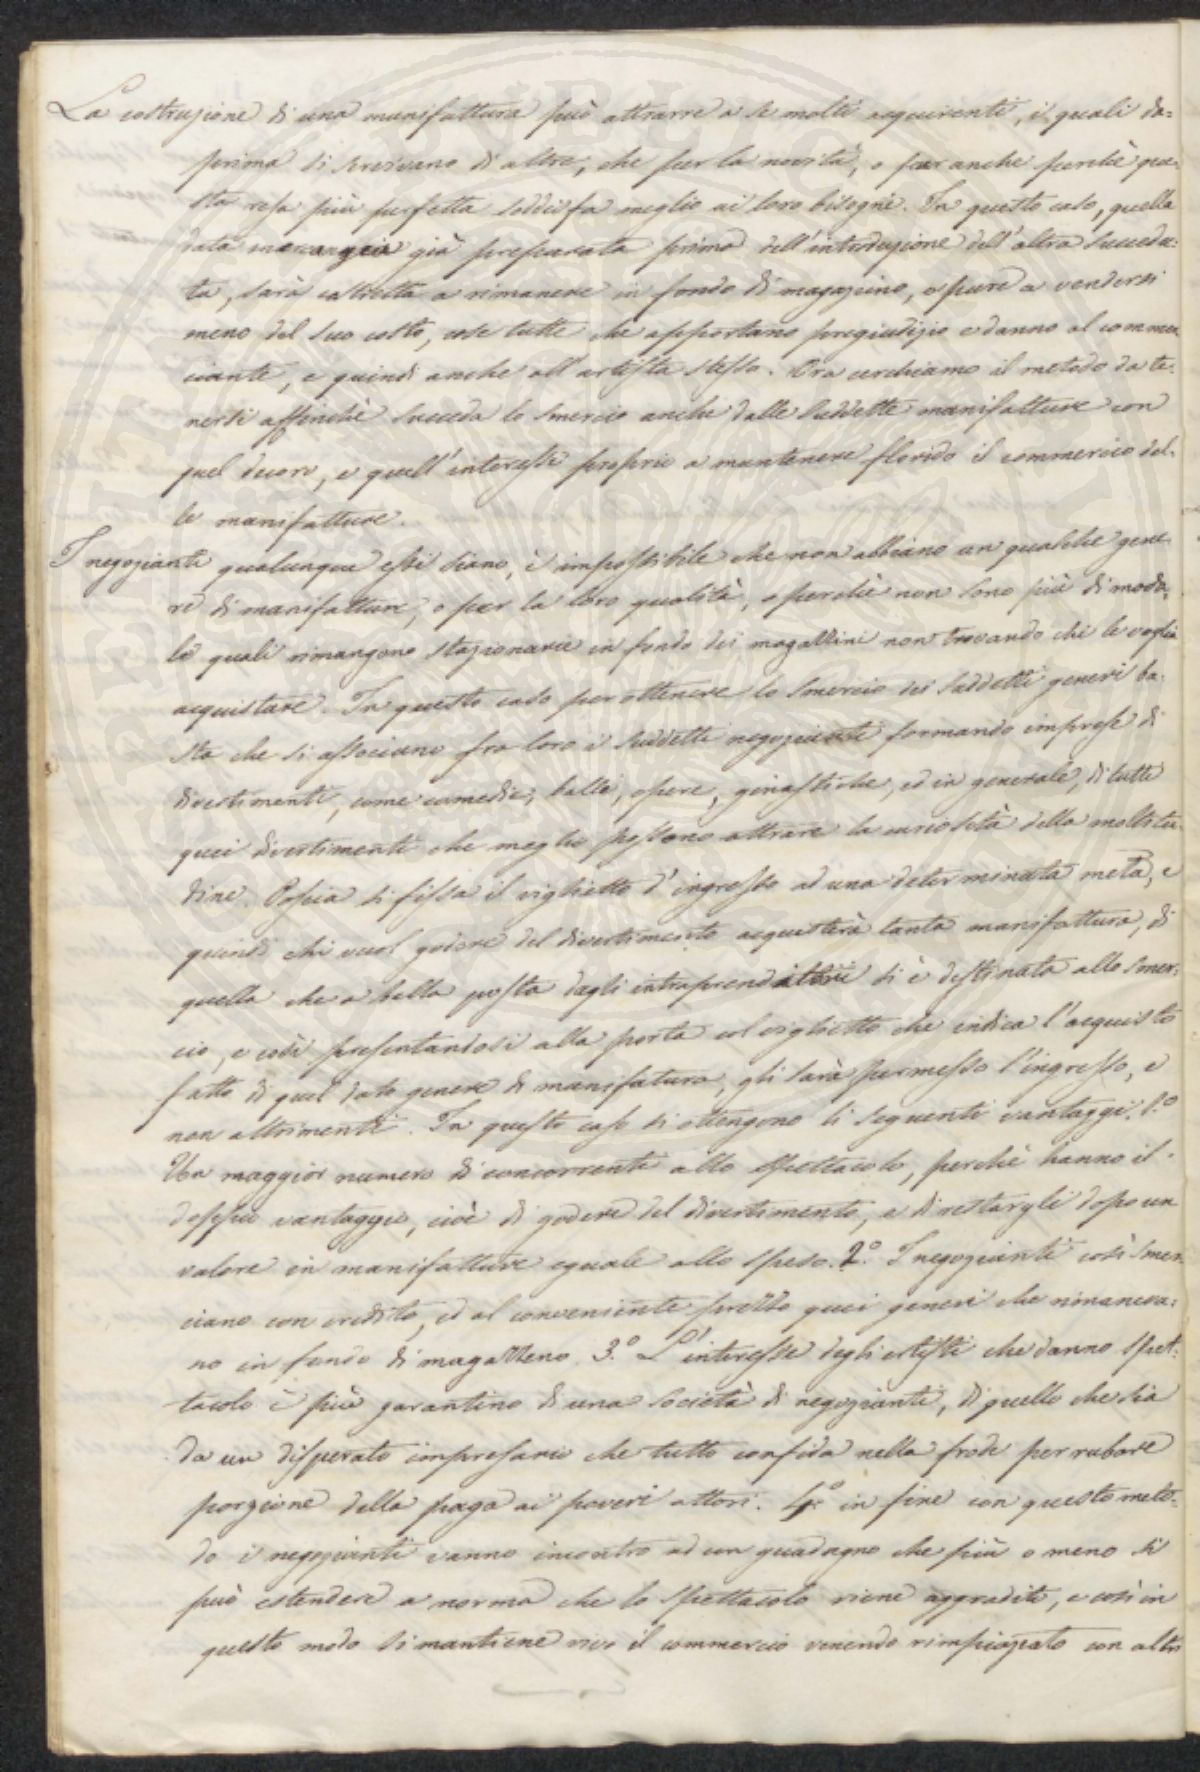 La costruzione di una manifattura può attrarre a se molti acquirenti, i quali da=
prima si servivano di altre, che per la novità, o per anche perchè que=
sta resa più perfetta soddisfa meglio ai loro bisogni. In questo caso, quella
data mercanzia già preparata prima dell'introduzione dell'altra succeda=
ta, sarà costretta a rimanere in fondo di magazzino, opure a vendersi
meno del suo costo, cose tutte che apportano pregiudizio e danno al commer
ciante, e quindi anche all'artista stesso. Ora cerchiamo il metodo da te=
nersi affinchè succeda lo smercio anche dalle suddette manifatture con
quel decoro, e quell'interesse proprio a mantenere florido il commercio del=
le manifatture.
I negozianti qualunque essi siano, è impossibile che non abbiano un qualche gene=
re di manifatture, o per la loro qualità, o perchè non sono più di moda,
le quali rimangono stazionarie in fondo dei magazzini non trovando chi le voglia
acquistare. In questo caso per ottenere lo smercio dei suddetti generi ba=
sta che si associano fra loro i suddetti negozianti formando imprese di
divertimenti, come comedie, balli, opere, ginastiche, ed in generale, di tutti
quei divertimenti che meglio possono attrare la curiosità della moltitu=
dine. Poscia si fissa il viglietto d'ingresso ad una determinata metà, e
quindi chi vuol godere del divertimento acquisterà tanta manifattura, di
quella che a bella posta dagli intraprenditori si è destinata allo smer=
cio, e così presentandosi alla porta col viglietto che indica l'acquisto
fatto di quel dato genere di manifatura, gli sarà permesso l'ingresso, e
non altrimenti. In questo caso si ottengono li seguenti vantaggi. 1.°
Un maggior numero di concorrenti allo spettacolo, perchè hanno il
doppio vantaggio, cioè di godere del divertimento, e di restargli dopo un
valore in manifatture eguale allo speso. 2.° I negozianti così smer=
ciano con credito, ed al conveniente prezzo quei generi che rimaneva=
no in fondo di magazzeno. 3.° L'interesse degli artisti che danno spet=
tacolo è più garantino di una società di negozianti, di quello che sia
da un disperato impresario che tutto confida nella frode per rubare
porzione della paga ai poveri attori. 4.° in fine con questo meto=
do i negozianti vanno incontro ad un guadagno che più o meno si
può estendere a norma che lo spettacolo viene aggradito, e così in
questo modo si mantiene vivo il commercio venendo rimpiazzato con altri